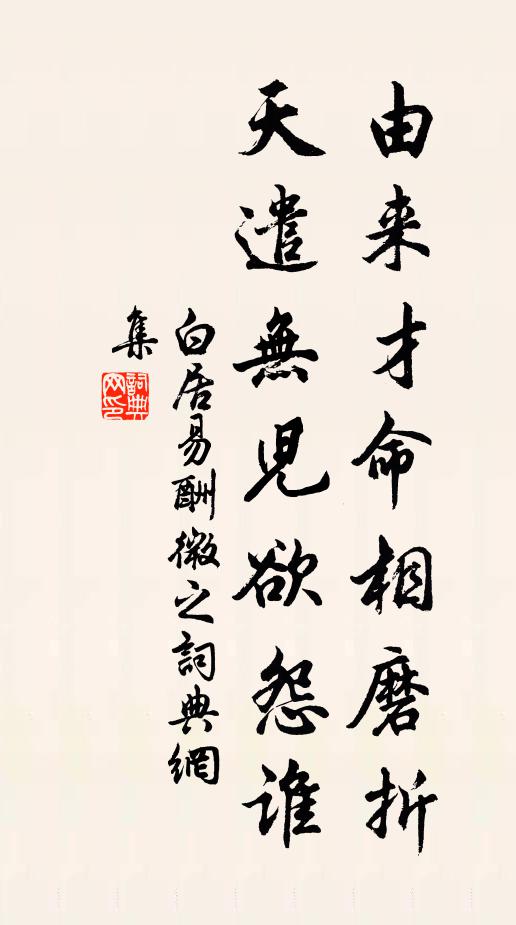 由来才命相磨折
天遣無児欲怨谁
白居易酬微之詞典網
集
詞典网印